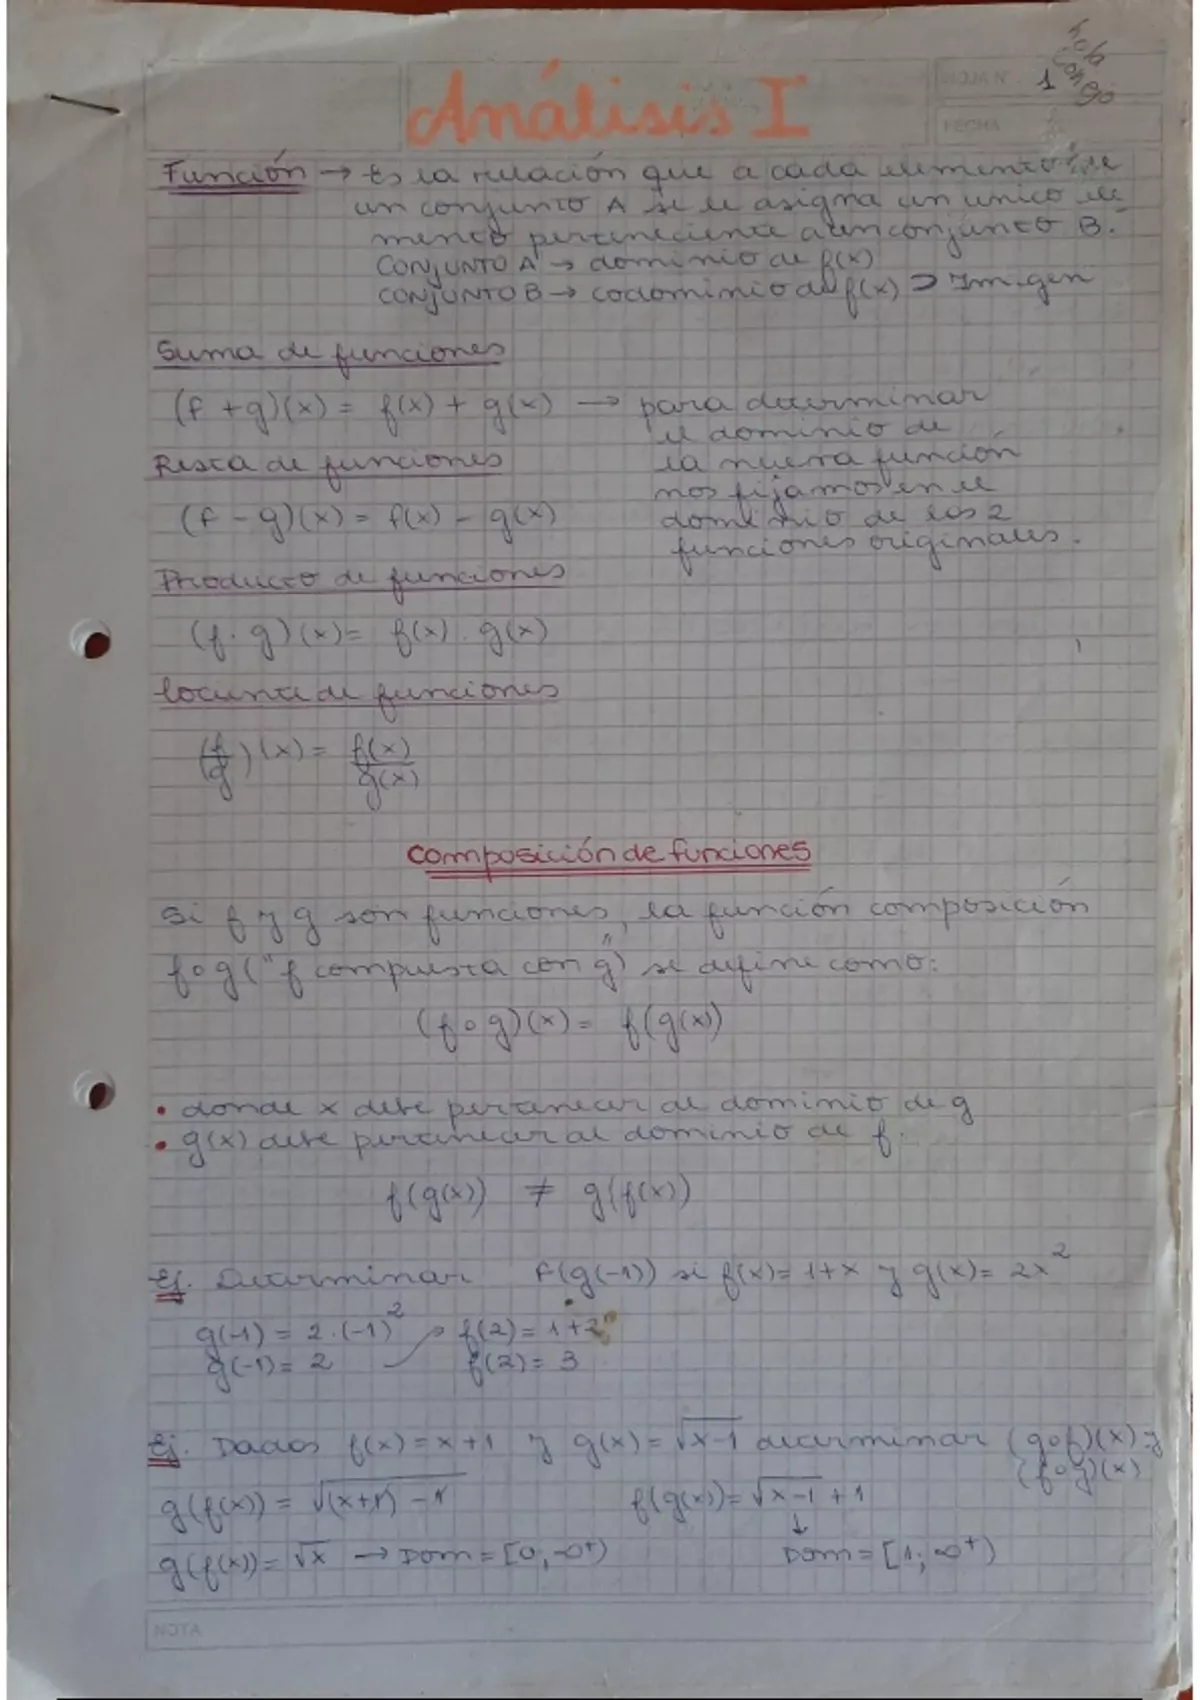 Análisis I
HOJA N° 1
FECHA
Función → Es la relación que a cada elemento de
un conjunto A se le asigna un unico ele
mento perteneciente a un conjunto B.
CONJUNTO A → dominio de f(x)
CONJUNTO B → codominio de f(x) ⊃ Imagen
Suma de funciones
(f + g)(x) = f(x) + g(x) → para determinar
el dominio de
Resta de funciones
la nueva función
nos fijamos en el
(f - g)(x) = f(x) - g(x)
dominio de las 2
funciones originales.
Producto de funciones
(f . g)(x) = f(x) . g(x)
Cociente de funciones
(f/g)(x) = f(x)/g(x)
Composición de funciones
Si f y g son funciones, la función composición
f∘g ("f compuesta con g") se define como:
(f∘g)(x) = f(g(x))
• donde x debe pertenecer al dominio de g
• g(x) debe pertenecer al dominio de f.
f(g(x)) ≠ g(f(x))
Ej. Determinar f(g(-1)) si f(x) = 1+x y g(x) = 2x²
g(-1) = 2.(-1)² → f(2) = 1+2
g(-1) = 2 f(2) = 3
Ej. Dados f(x) = x+1 y g(x) = √x-1 determinar (g∘f)(x) y
(f∘g)(x)
g(f(x)) = √(x+1) - 1 f(g(x)) = √x-1 + 1
↓
g(f(x)) = √x → Dom = [0, ∞+) Dom = [1; ∞+)
NOTA